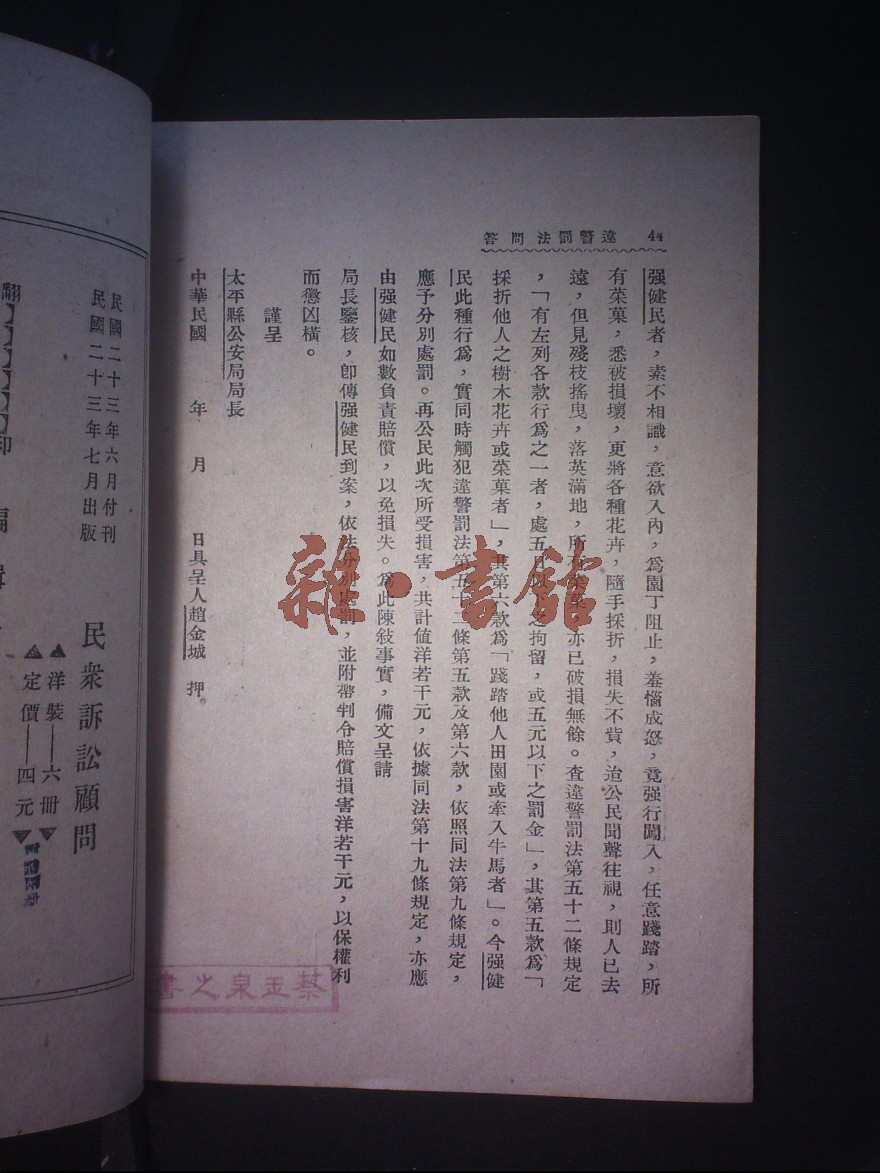 44　違警罰法問答
强健民者，素不相識，意欲入內，爲園丁阻止，羞惱成怒，竟强行闖入，任意踐踏，所
有菜菓，悉被損壞，更將各種花卉，隨手採折，損失不貲，迨公民聞聲往視，則人已去
遠，但見殘枝搖曳，落英滿地，所有菜菓，亦已破損無餘。查違警罰法第五十二條規定
，「有左列各款行爲之一者，處五日以下之拘留，或五元以下之罰金」，其第五款爲「
採折他人之樹木花卉或菜菓者」，其第六款爲「踐踏他人田園或牽入牛馬者」。今强健
民此種行爲，實同時觸犯違警罰法第五十二條第五款及第六款，依照同法第九條規定，
應予分別處罰。再公民此次所受損害，共計値洋若干元，依據同法第十九條規定，亦應
由强健民如數負責賠償，以免損失。爲此陳敍事實，備文呈請
局長鑒核，卽傳强健民到案，依法分別處罰，並附帶判令賠償損害洋若干元，以保權利
而懲凶橫。
謹呈
太平縣公安局局長
中華民國　年　月　日具呈人趙金城　押。
蔡玉泉之書
雜·書館
民國二十三年六月付刊
民國二十三年七月出版
民衆訴訟顧問
▲洋裝——六册▼
▲定價——四元▼
翻印
編輯